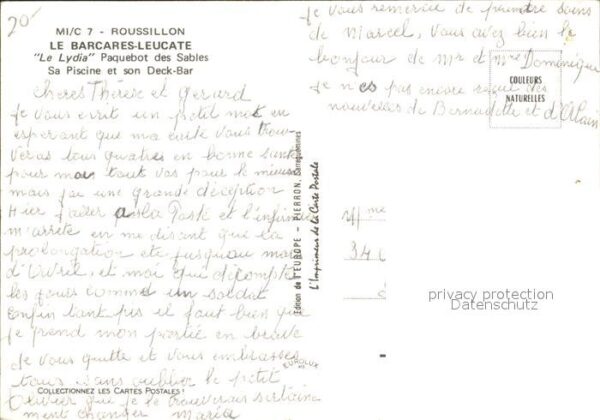 20
MI/C 7 - ROUSSILLON
LE BARCARES-LEUCATE
"Le Lydia" Paquebot des Sables
Sa Piscine et son Deck-Bar
Chères Thérèse et Gerard
je vous ecrit un petit mot en
esperant que ma carte vous trou-
veras tous quatres en bonne santé
pour moi tout vas pour le mieux
mais j'ai une grande déception
Hier j'aller a la Poste et l'infirmière
m'arrete en me disant que la
prolongation ete jusqu'au mois
d'Avril, et moi qui décompte
les jours comme un soldat
enfin tant pis il faut bien que
je prend mon partie en brave
je vous quitte et vous embrasses
tous sans oublier le petit
Olivier que je le trouverais certaine
ment changer Maria
COLLECTIONNEZ LES CARTES POSTALES !
je vous remercie de prendre soins
de Marcel, vous avez bien le
bonjour de Mr et Mme Dominique
je n'es pas encore reçut des
nouvelles de Bernadette et d'Alain
COULEURS
NATURELLES
Edition de l'EUROPE - PIERRON, Sarreguemines
L'Imprimeur de la Carte Postale
EUROLUX
Mme
34
privacy protection
Datenschutz